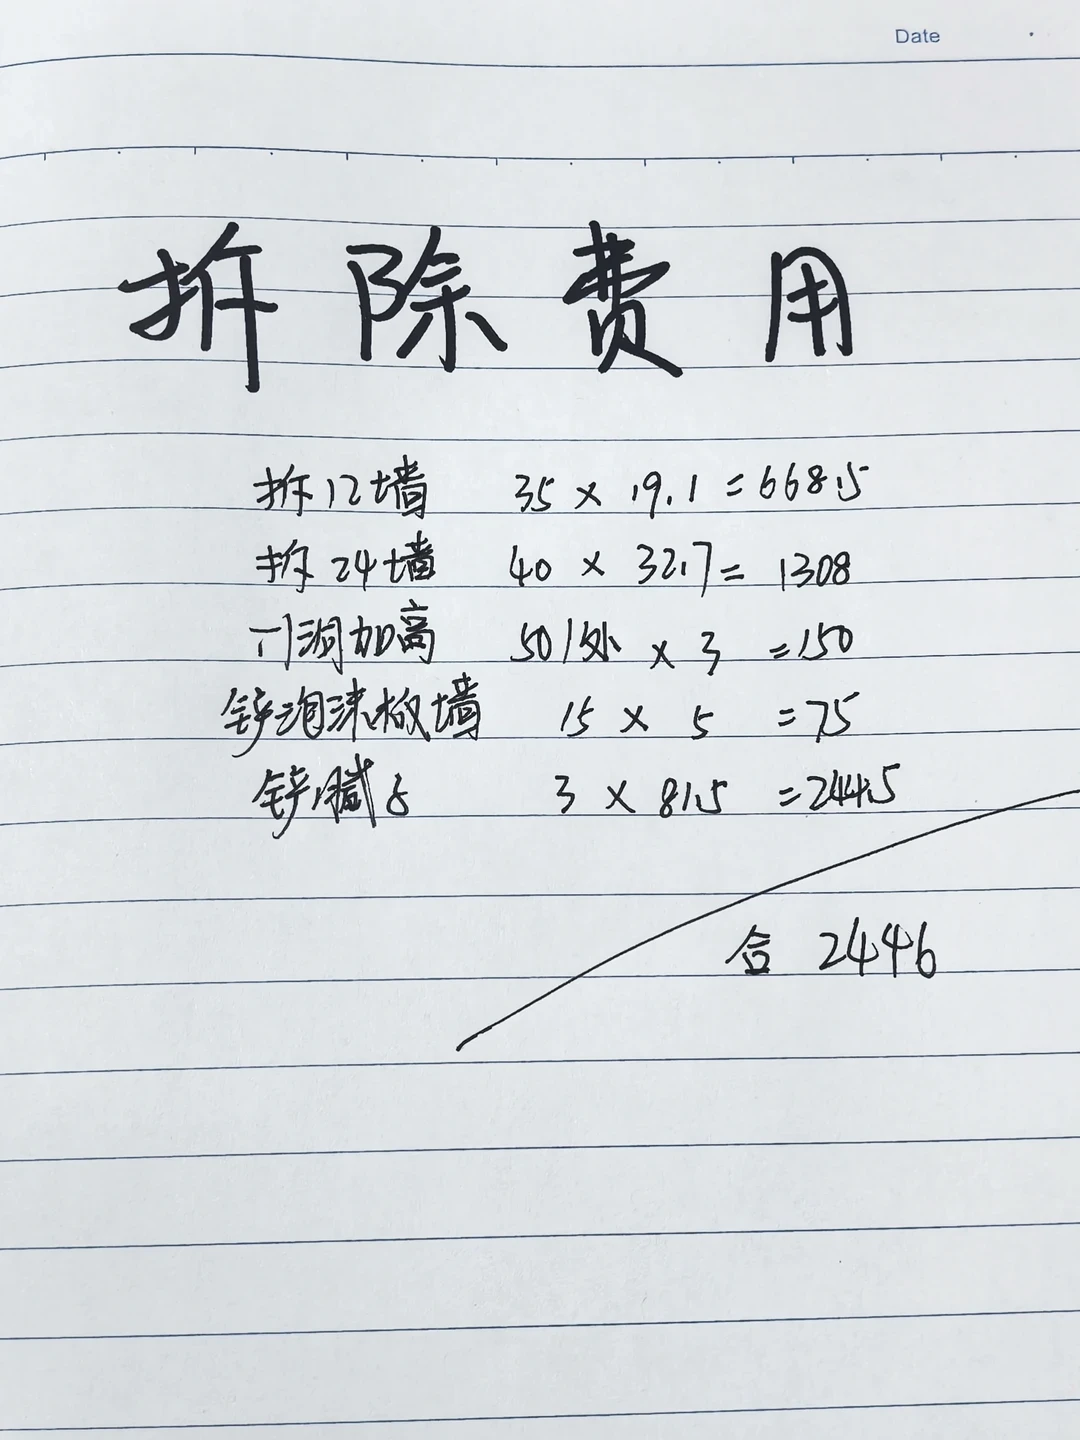 Date
拆除费用
拆12墙 35 × 19.1 = 668.5
拆24墙 40 × 32.7 = 1308
门洞加高 50/处 × 3 = 150
铲泡沫板墙 15 × 5 = 75
铲腻子 3 × 81.5 = 244.5
合 2446